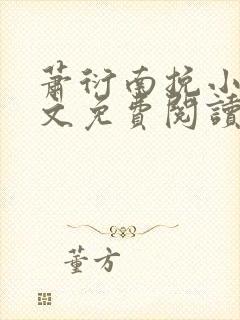 蕭衍南挽小
文免費閱讀
董方